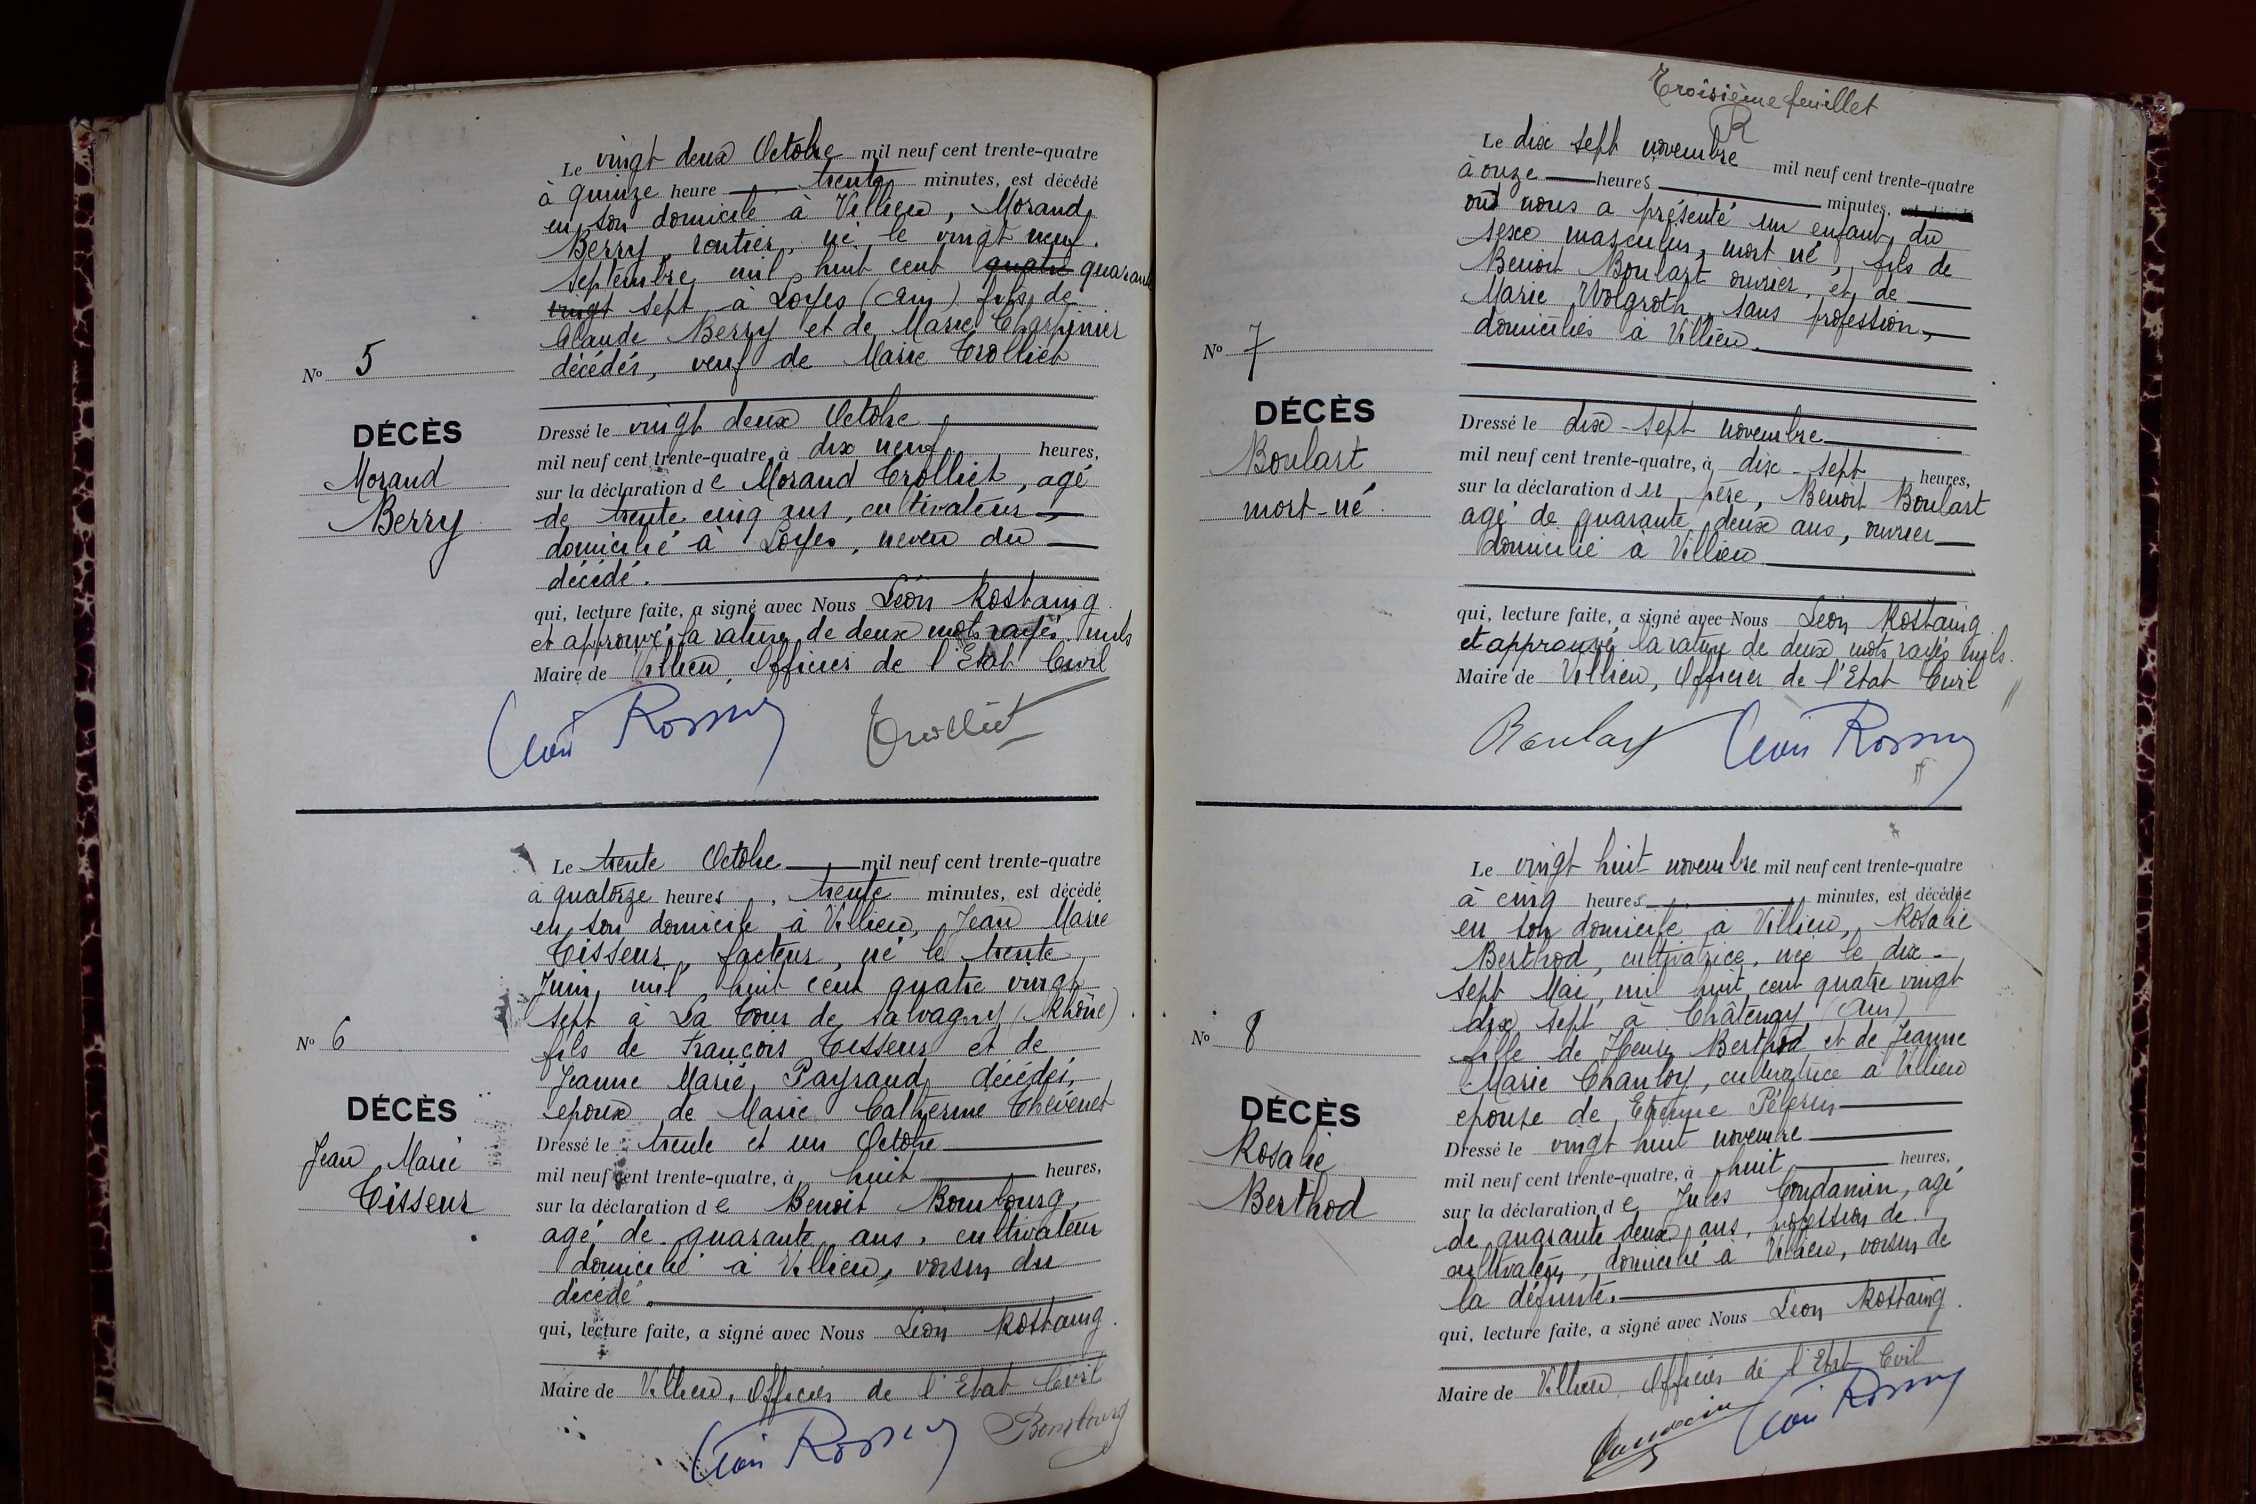 Le vingt deux Octobre mil neuf cent trente-quatre
à quinze heure trente minutes, est décédé
en son domicile à Villieu, Morand
Berry, rentier, né le vingt neuf
septembre mil huit cent quatre quarante
vingt sept à Loyes (Ain) fils de
Claude Berry et de Marie Charpinier
décédés, veuf de Marie Trolliet
N° 5
DÉCÈS
Morand
Berry
Dressé le vingt deux Octobre
mil neuf cent trente-quatre à dix neuf heures,
sur la déclaration de Morand Trolliet, agé
de trente cinq ans, cultivateur
domicilié à Loyes, neveu du
décédé.
qui, lecture faite, a signé avec Nous Léon Rostaing
et approuvé la rature de deux mots rayés nuls
Maire de Villieu, Officier de l'Etat Civil
Trolliet
Le trente Octobre mil neuf cent trente-quatre
à quatorze heures, trente minutes, est décédé
en son domicile à Villieu, Jean Marie
Tisseur, facteur, né le trente
Juin mil huit cent quatre vingt
sept à La Tour de Salvagny (Rhône)
fils de François Tisseur et de
Jeanne Marie Payraud décédés,
époux de Marie Catherine Thévenet
N° 6
DÉCÈS
Jean Marie
Tisseur
Dressé le trente et un Octobre
mil neuf cent trente-quatre, à huit heures,
sur la déclaration de Benoit Bombourg,
agé de quarante ans, cultivateur
domicilié à Villieu, voisin du
décédé.
qui, lecture faite, a signé avec Nous Léon Rostaing
Maire de Villieu, Officier de l'Etat Civil
Bombourg
Troisième feuillet
R
Le dix sept novembre mil neuf cent trente-quatre
à onze heures minutes, est décédé
ont nous a présenté un enfant du
sexe masculin, mort né, fils de
Benoit Boulart ouvrier, et de
Marie Wolgroth, sans profession,
domiciliés à Villieu.
N° 7
DÉCÈS
Boulart
mort-né
Dressé le dix-sept novembre
mil neuf cent trente-quatre, à dix-sept heures,
sur la déclaration du père, Benoit Boulart
agé de quarante deux ans, ouvrier
domicilié à Villieu
qui, lecture faite, a signé avec Nous Léon Rostaing
et approuvé la rature de deux mots rayés nuls.
Maire de Villieu, Officier de l'Etat Civil
Boulart
Le vingt huit novembre mil neuf cent trente-quatre
à cinq heures minutes, est décédée
en son domicile à Villieu, Rosalie
Berthod, cultivatrice, née le dix-
sept Mai mil huit cent quatre vingt
dix sept à Châtenay (Ain)
fille de Henri Berthod et de Jeanne
Marie Chanloy, cultivatrice à Villieu
épouse de Etienne Pélerin
N° 8
DÉCÈS
Rosalie
Berthod
Dressé le vingt huit novembre
mil neuf cent trente-quatre, à huit heures,
sur la déclaration de Jules Condamin, agé
de quarante deux ans, profession de
cultivateur, domicilié à Villieu, voisin de
la défunte.
qui, lecture faite, a signé avec Nous Léon Rostaing
Maire de Villieu, Officier de l'Etat Civil
Condamin